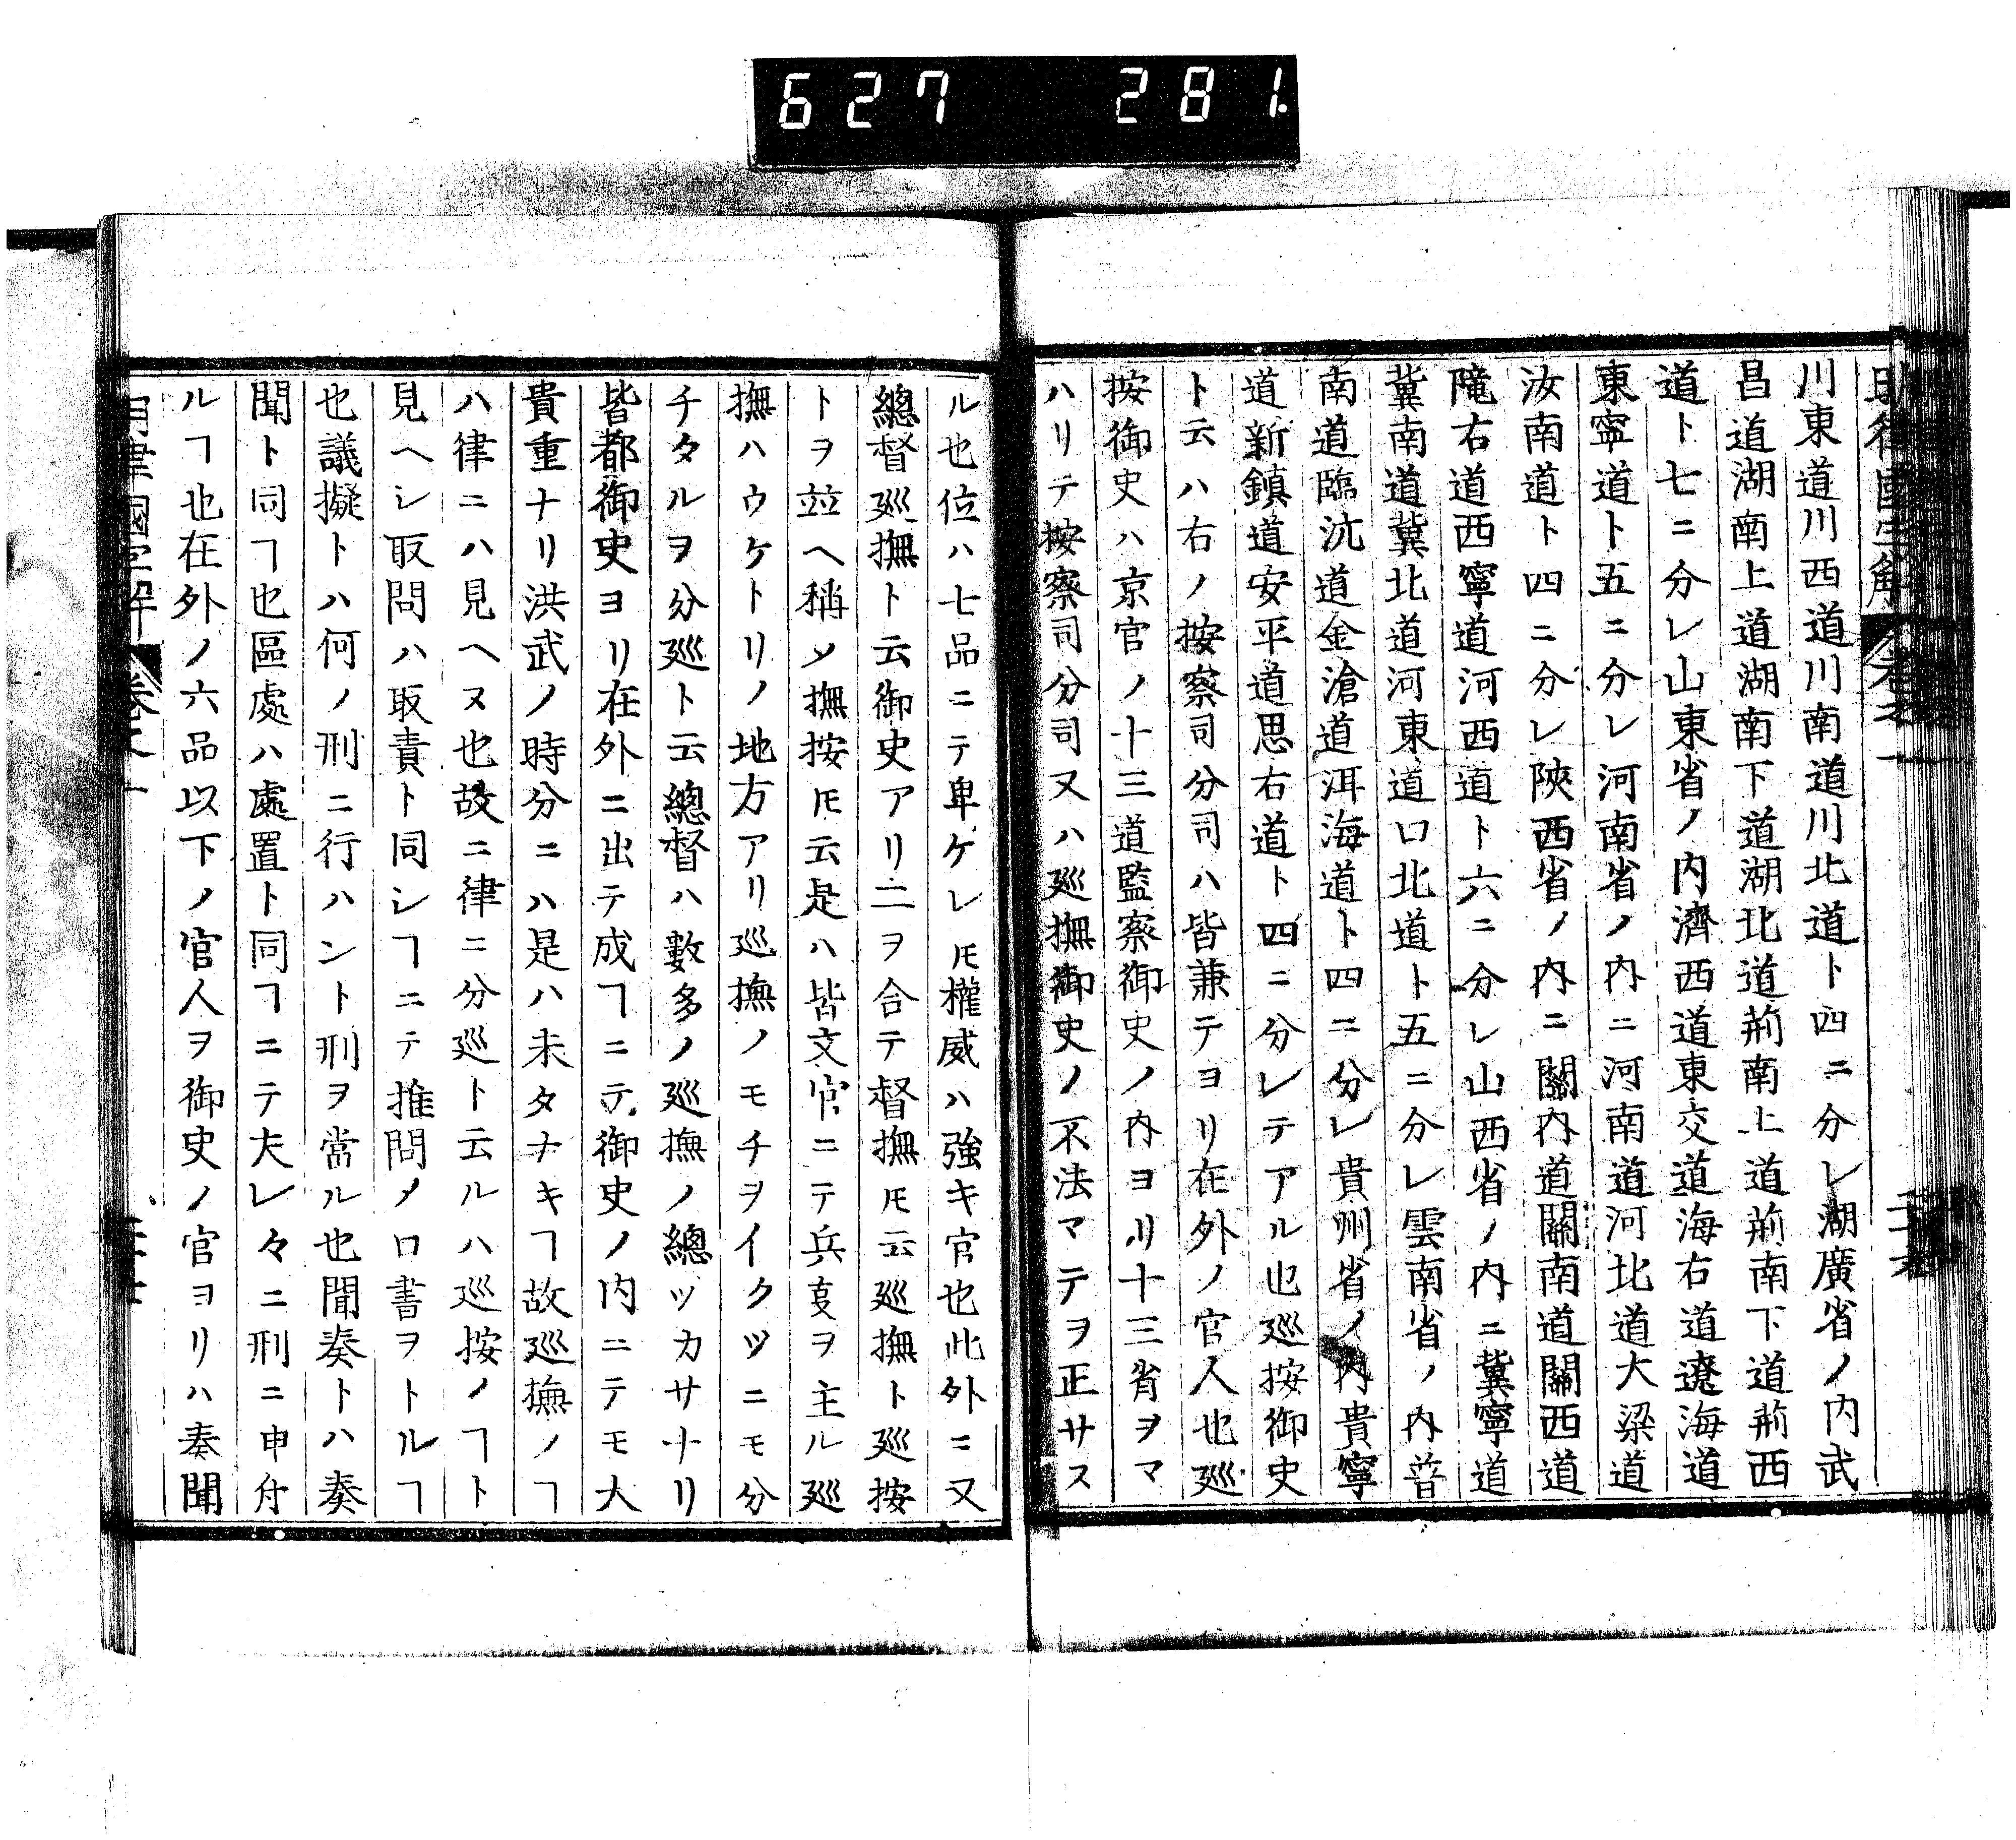 627 281
川東道川西道川南道川北道ト四ニ分レ湖廣省ノ内武
昌道湖南上道湖南下道湖北道荊南上道荊南下道荊西
道ト七ニ分レ山東省ノ内濟西道東交道海右道遼海道
東寧道ト五ニ分レ河南省ノ内ニ河南道河北道大梁道
汝南道ト四ニ分レ陝西省ノ内ニ關內道關南道關西道
隴右道西寧道河西道ト六ニ分レ山西省ノ内ニ冀寧道
冀南道冀北道河東道口北道ト五ニ分レ雲南省ノ内普
南道臨沅道金滄道洱海道ト四ニ分レ貴州省ノ内貴寧
道新鎮道安平道思右道ト四ニ分レテアル也巡按御史
ト云ハ右ノ按察司分司ハ皆兼テヨリ在外ノ官人也巡
按御史ハ京官ノ十三道監察御史ノ内ヨリ十三省ヲマ
ハリテ按察司分司又ハ巡撫御史ノ不法マテヲ正サス
ル也位ハ七品ニテ卑ケレ𪜈權威ハ強キ官也此外ニ又
總督巡撫ト云御史アリ二ヲ合テ督撫𪜈云巡撫ト巡按
トヲ並ヘ稱〆撫按𪜈云是ハ皆文官ニテ兵㕝ヲ主ル巡
撫ハウケトリノ地方アリ巡撫ノモチヲイクツニモ分
チタルヲ分巡ト云總督ハ數多ノ巡撫ノ總ツカサナリ
皆都御史ヨリ在外ニ出テ成ヿニテ御史ノ内ニテモ大
貴重ナリ洪武ノ時分ニハ是ハ未タナキヿ故巡撫ノヿ
ハ律ニハ見ヘヌ也故ニ律ニ分巡ト云ルハ巡按ノヿト
見ヘシ取問ハ取責ト同シヿニテ推問〆口書ヲトルヿ
也議擬トハ何ノ刑ニ行ハント刑ヲ當ル也聞奏トハ奏
聞ト同ヿ也區處ハ處置ト同ヿニテ夫レ々ニ刑ニ申付
ルヿ也在外ノ六品以下ノ官人ヲ御史ノ官ヨリハ奏聞